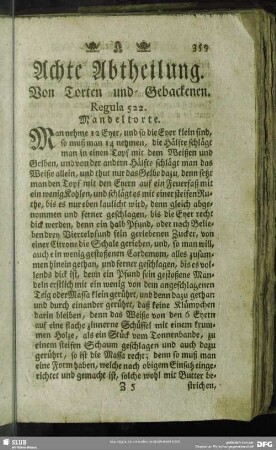 359
Achte Abtheilung.
Von Torten und Gebackenen.
Regula 522.
Mandeltorte.
Man nehme 12 Eyer, und so die Eyer klein sind,
so muß man 14 nehmen, die Hälfte schlägt
man in einen Topf mit dem Weißen und
Gelben, und von der andern Hälfte schlägt man das
Weiße allein, und thut nur das Gelbe dazu, denn setzt
man den Topf mit den Eyern auf ein Feuerfaß mit
ein wenig Kohlen, und schlägt es mit einer steifen Ru-
the, bis es nur eben laulicht wird, denn gleich abge-
nommen und ferner geschlagen, bis die Eyer recht
dick werden, denn ein halb Pfund, oder nach Belie-
ben drey Viertelpfund fein geriebenen Zucker, von
einer Citrone die Schale gerieben, und, so man will,
auch ein wenig gestoßenen Cardemom, alles zusam-
men hinein gethan, und ferner geschlagen, bis es vol-
lends dick ist, denn ein Pfund fein gestoßene Man-
deln erstlich mit ein wenig von dem angeschlagenen
Teig oder Massa klein gerührt, und denn dazu gethan
und durch einander gerührt, daß keine Klümpchen
darin bleiben, denn das Weiße von den 6 Eyern
auf eine flache zinnerne Schüssel mit einem krum-
men Holze, als ein Stück vom Tonnenbande, zu
einem steifen Schaum geschlagen und auch dazu
gerührt, so ist die Massa recht; denn so muß man
eine Form haben, welche nach obigem Einsatz einge-
richtet und gemacht ist, solche wohl mit Butter be-
Z 5 streichen,
SLUB
DFG